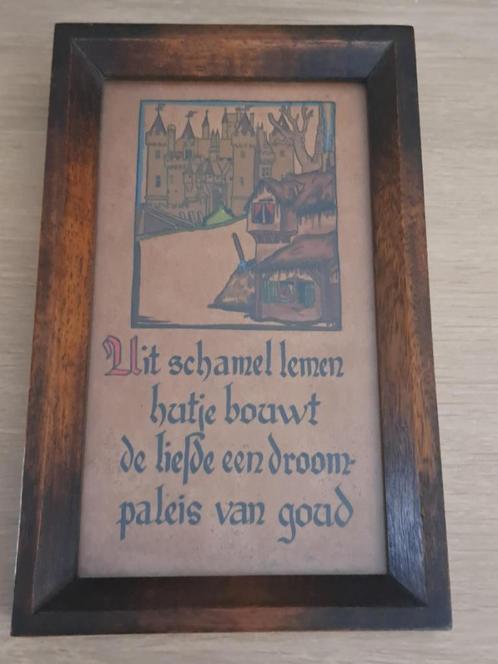 Uit schamel lemen
hutje bouwt
de liefde een droom-
paleis van goud